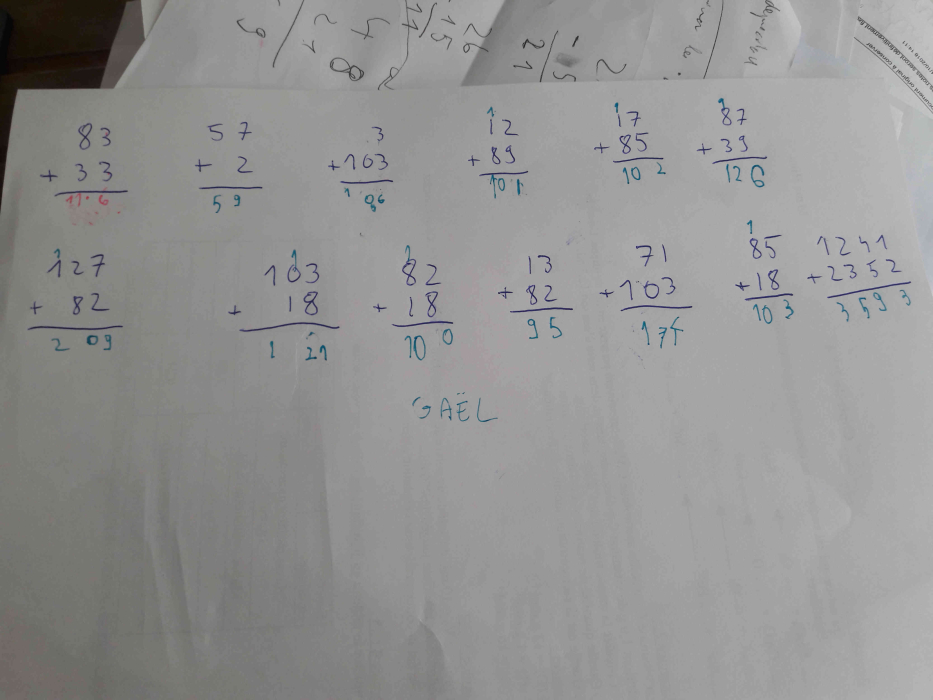 83 57 3 12 17 87
+ 33 + 2 +103 +89 +85 +39
116 59 106 101 102 126
127 103 82 13 71 85 1241
+ 82 + 18 + 18 + 82 +103 +18 +2352
209 121 100 95 174 103 3593
GAËL
26
- 15
11
- 5
21
2
4
21
8
9